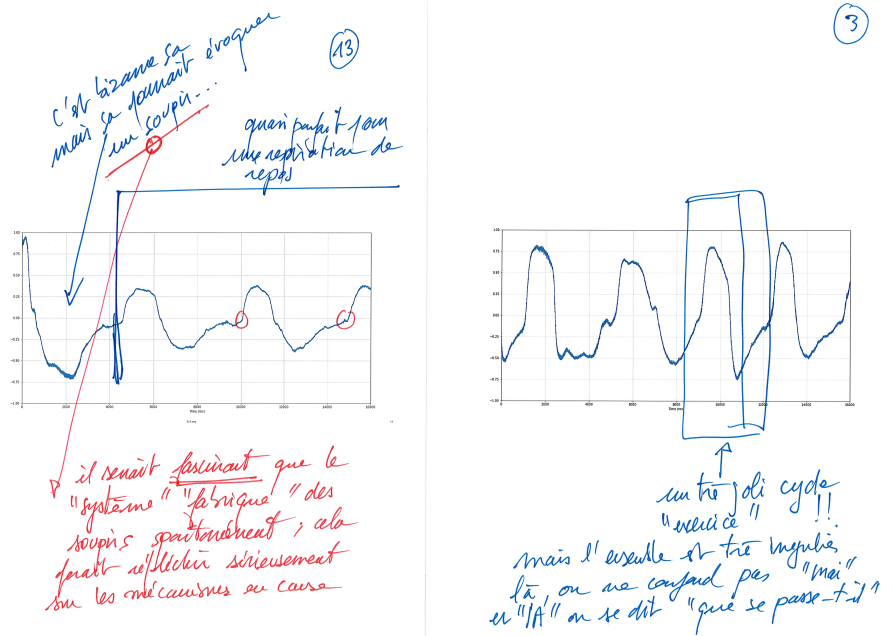 13
c'est bizarre ça
mais ça pourrait évoquer
un soupir...
quasi parfait pour
une respiration de
repos
1.00
0.75
0.50
0.25
0.00
-0.25
-0.50
-0.75
-1.00
0 2000 4000 6000 8000 10000 12000 14000 16000
Time (ms)
il serait fascinant que le
"système" "fabrique" des
soupirs spontanément ; cela
ferait réfléchir sérieusement
sur les mécanismes en cause
3
1.00
0.75
0.50
0.25
0.00
-0.25
-0.50
-0.75
-1.00
0 2000 4000 6000 8000 10000 12000 14000 16000
Time (ms)
un très joli cycle
"exercice" !!
mais l'ensemble est très irrégulier
là, on ne confond pas "moi"
et "IA" on se dit "que se passe-t-il"